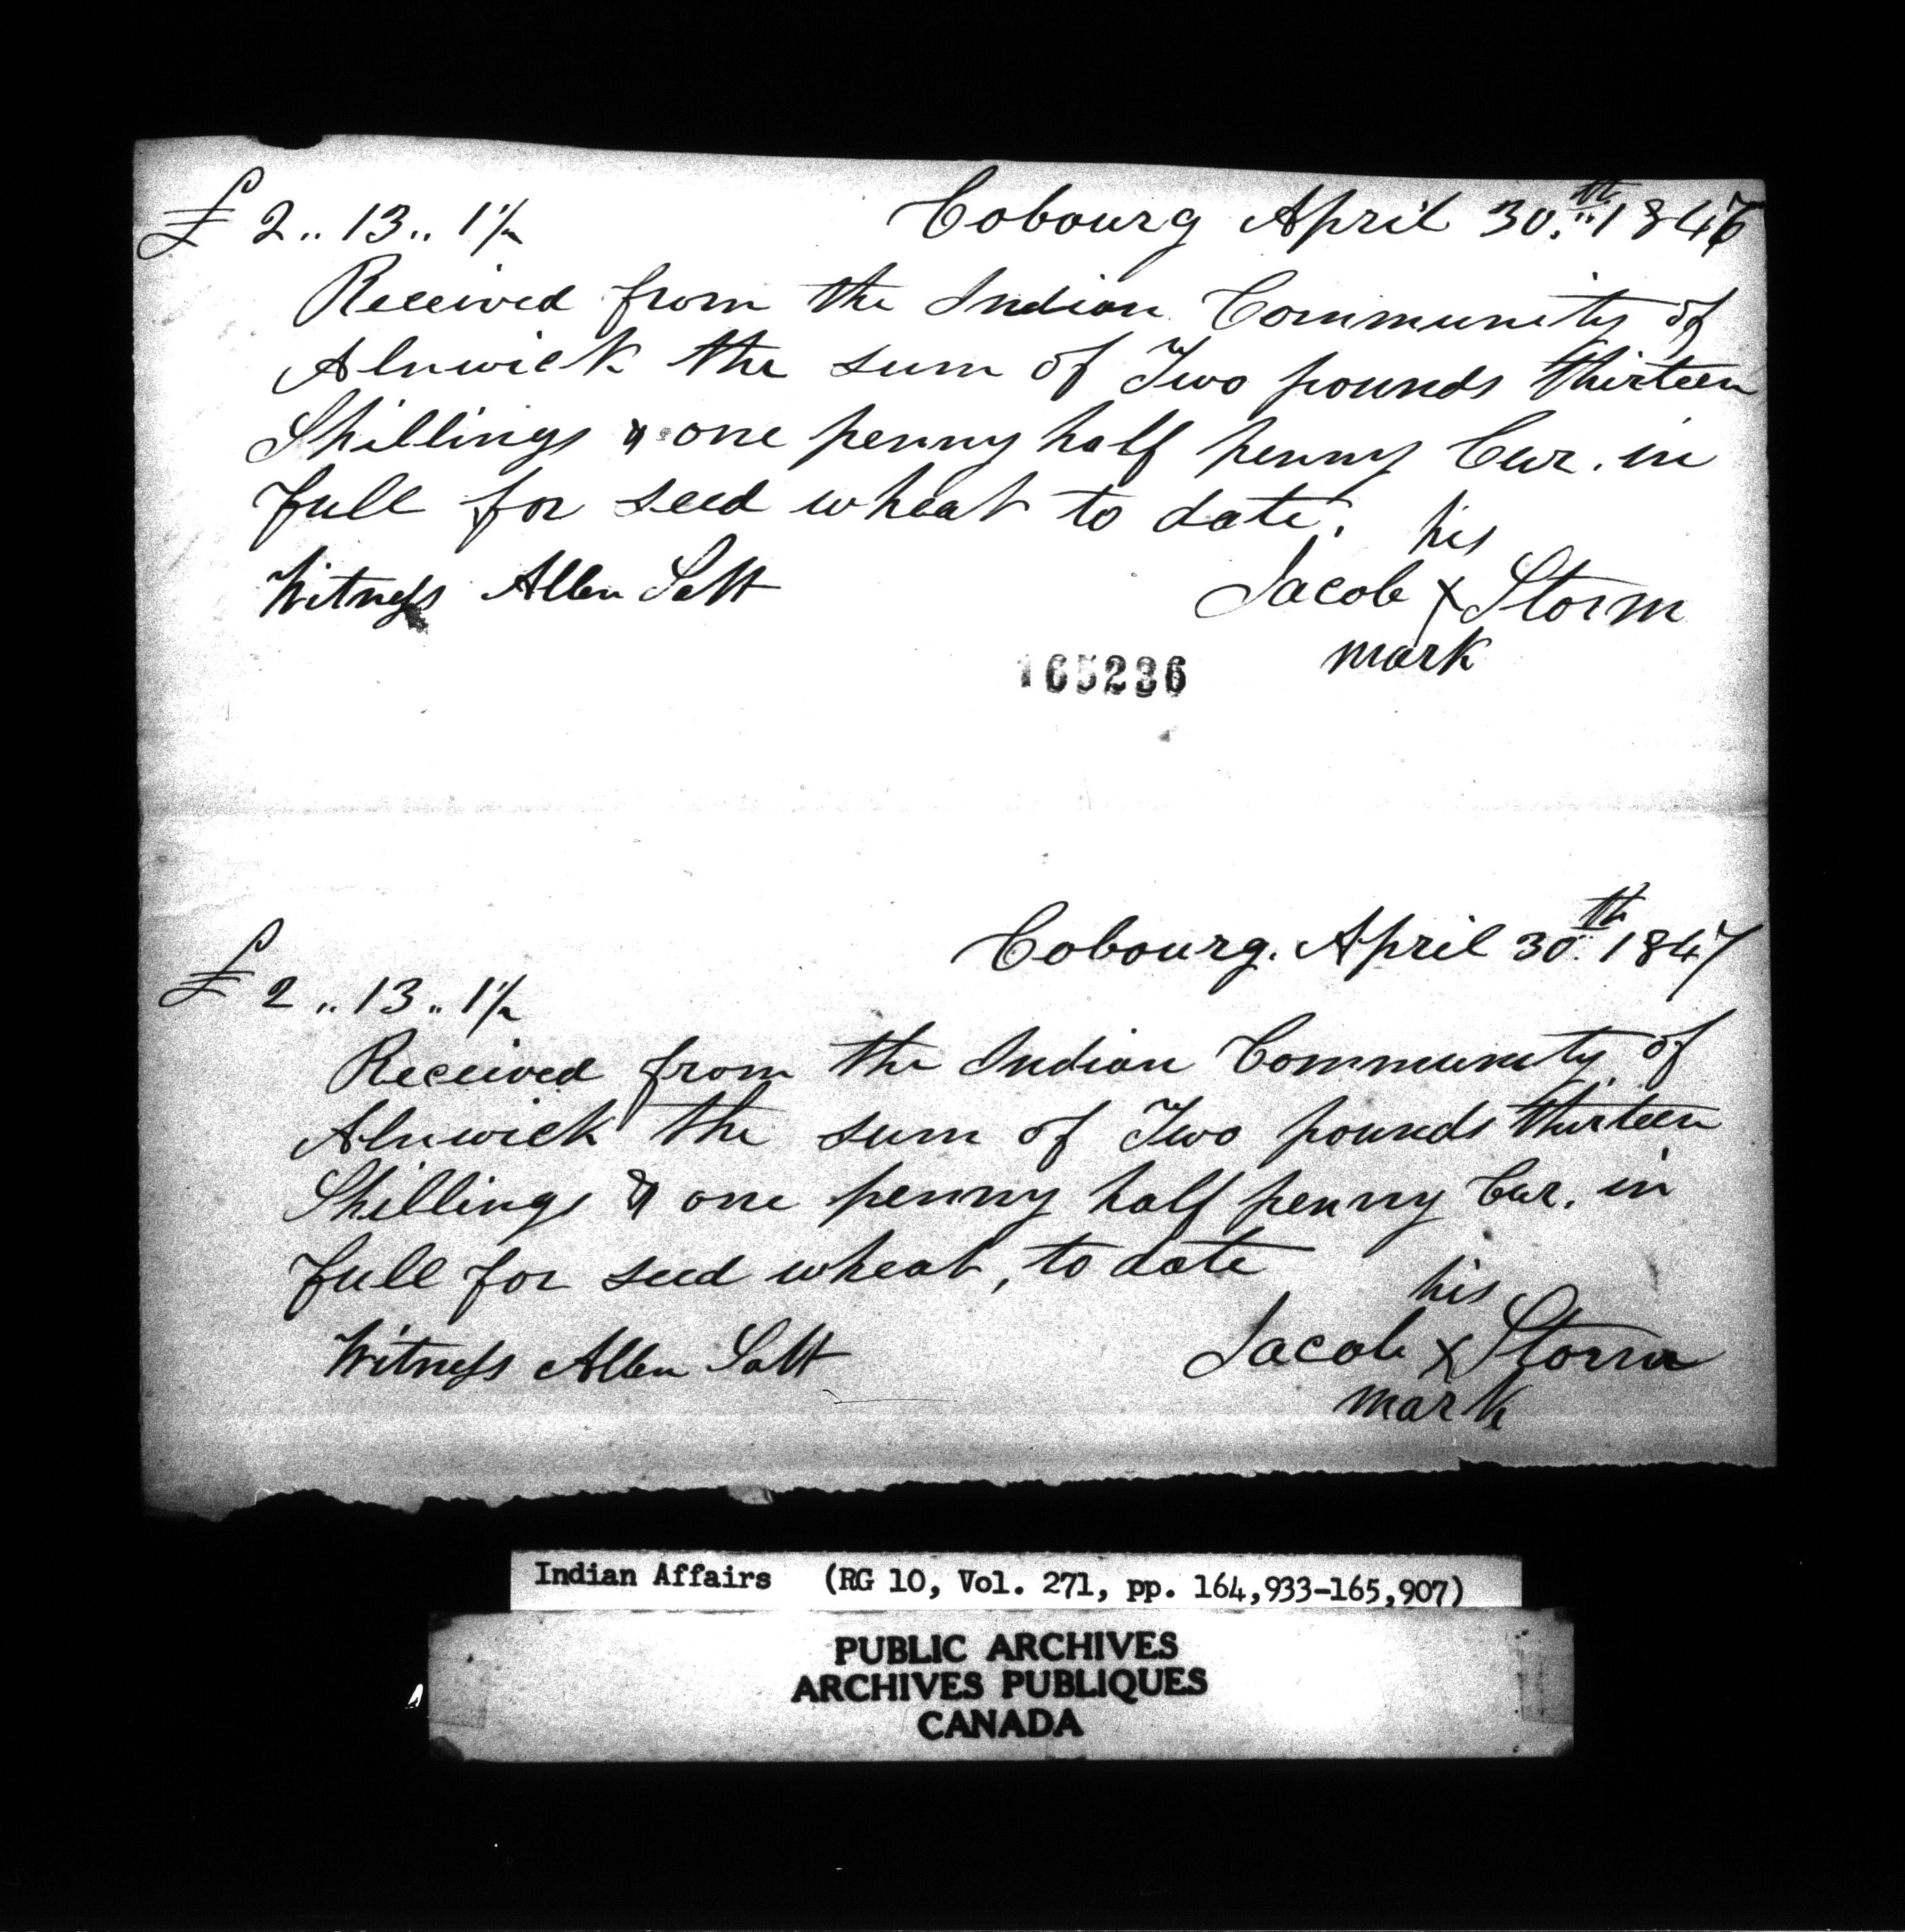 £ 2 .. 13 .. 1½ Cobourg April 30.th 1847
Received from the Indian Community of
Alnwick the sum of Two pounds thirteen
Shillings & one penny half penny Cur. in
full for seed wheat to date.
his
Witness Allen Salt Jacob X Storm
mark
165236
Cobourg. April 30th. 1847
£ 2 .. 13 .. 1½
Received from the Indian Community of
Alnwick the sum of Two pounds thirteen
Shillings & one penny half penny Cur. in
full for seed wheat, to date
his
Witness Allen Salt Jacob X Storm
mark
Indian Affairs (RG 10, Vol. 271, pp. 164,933-165,907)
PUBLIC ARCHIVES
ARCHIVES PUBLIQUES
CANADA